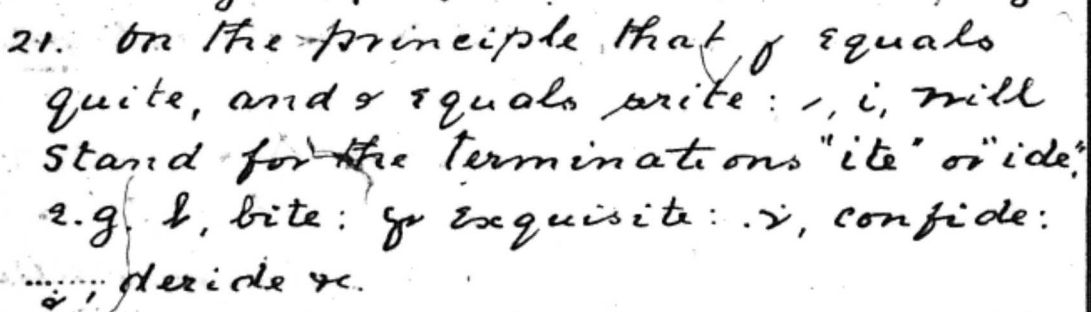 21. On the principle that equals
quite, and equals write: i, will
stand for the terminations "ite" or "ide",
e.g. bite: exquisite: confide:
deride &c.